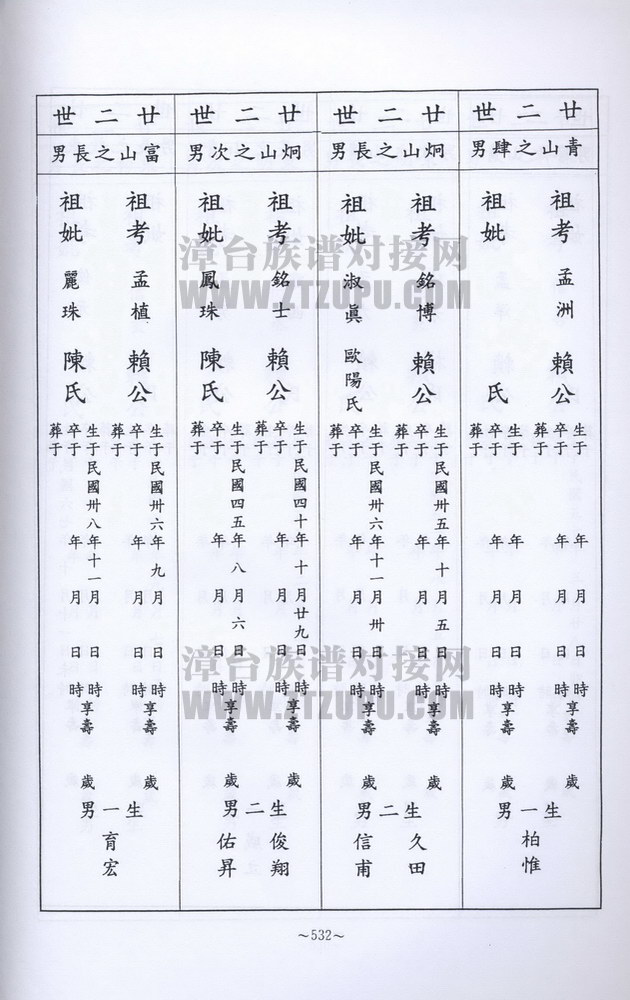 廿二世
青山之肆男
祖考孟洲賴公
生于年月日時享壽歲
卒于年月日時
葬于
祖妣氏
生于年月日時享壽歲
卒于年月日時
葬于
生一男
柏惟
廿二世
炯山之長男
祖考銘博賴公
生于民國卅五年十月五日時享壽歲
卒于年月日時
葬于
祖妣淑眞歐陽氏
生于民國卅六年十一月卅日時享壽歲
卒于年月日時
葬于
生二男
久田
信甫
廿二世
炯山之次男
祖考銘士賴公
生于民國四十年十月廿九日時享壽歲
卒于年月日時
葬于
祖妣鳳珠陳氏
生于民國四五年八月六日時享壽歲
卒于年月日時
葬于
生二男
俊翔
佑昇
廿二世
富山之長男
祖考孟植賴公
生于民國卅六年九月日時享壽歲
卒于年月日時
葬于
祖妣麗珠陳氏
生于民國卅八年十一月日時享壽歲
卒于年月日時
葬于
生一男
育宏
～532～
漳台族谱对接网
WWW.ZTZUPU.COM
漳台族谱对接网
WWW.ZTZUPU.COM